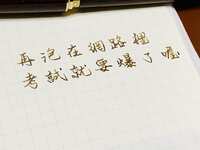 再泡在網路裡
考試就要爆了喔